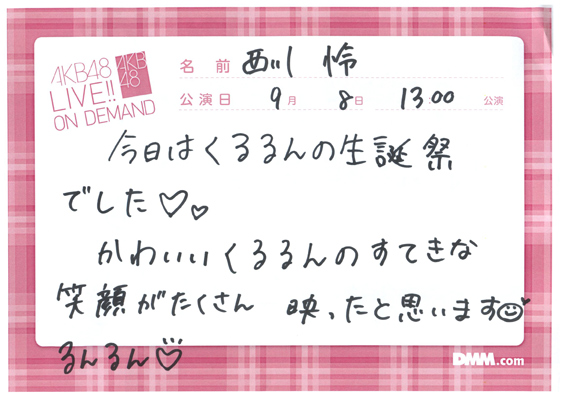 AKB48
LIVE!!
ON DEMAND
AKB
48
名 前 西川 怜
公演日 9月 8日 13:00 公演
今日はくるるんの生誕祭
でした♡♡
かわいいくるるんのすてきな
笑顔がたくさん 映ったと思います
るんるん♡
DMM.com